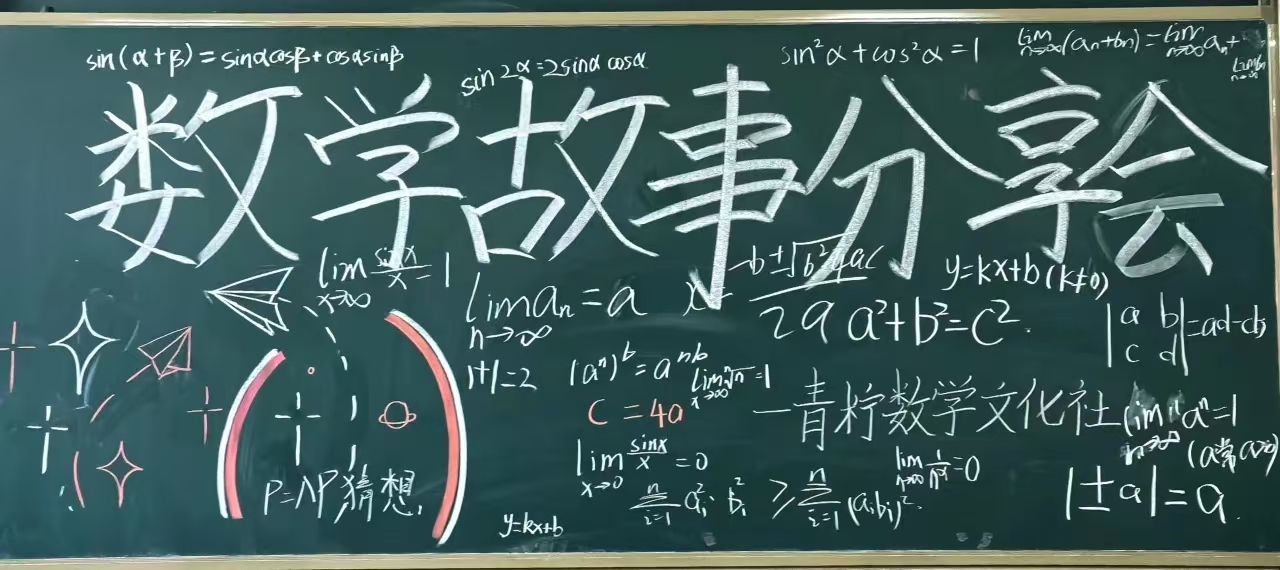 sin(α+β)=sinαcosβ+cosαsinβ
sin2α=2sinα cosα
sin²α+cos²α=1
lim n→∞ (an+bn)=lim n→∞ an+
lim n→∞
数学故事分享会
lim x→∞ sinx/x=1
lim an=a n→∞
x=-b±√b²-4ac/2a
y=kx+b(k≠0)
a²+b²=c².
|a b c d|=ad-cb
1+1=2
(aⁿ)ᵇ=aⁿᵇ
lim x→∞ ⁿ√n=1
C=4a
—青柠数学文化社
lim n→∞ aⁿ=1
(a常 a>0)
lim x→0 sinx/x=0
lim n→∞ 1/n^α=0
|±a|=a.
P=NP猜想.
n Σ i=1 ai²·bi² ≥ n Σ i=1 (aibi)².
y=kx+b